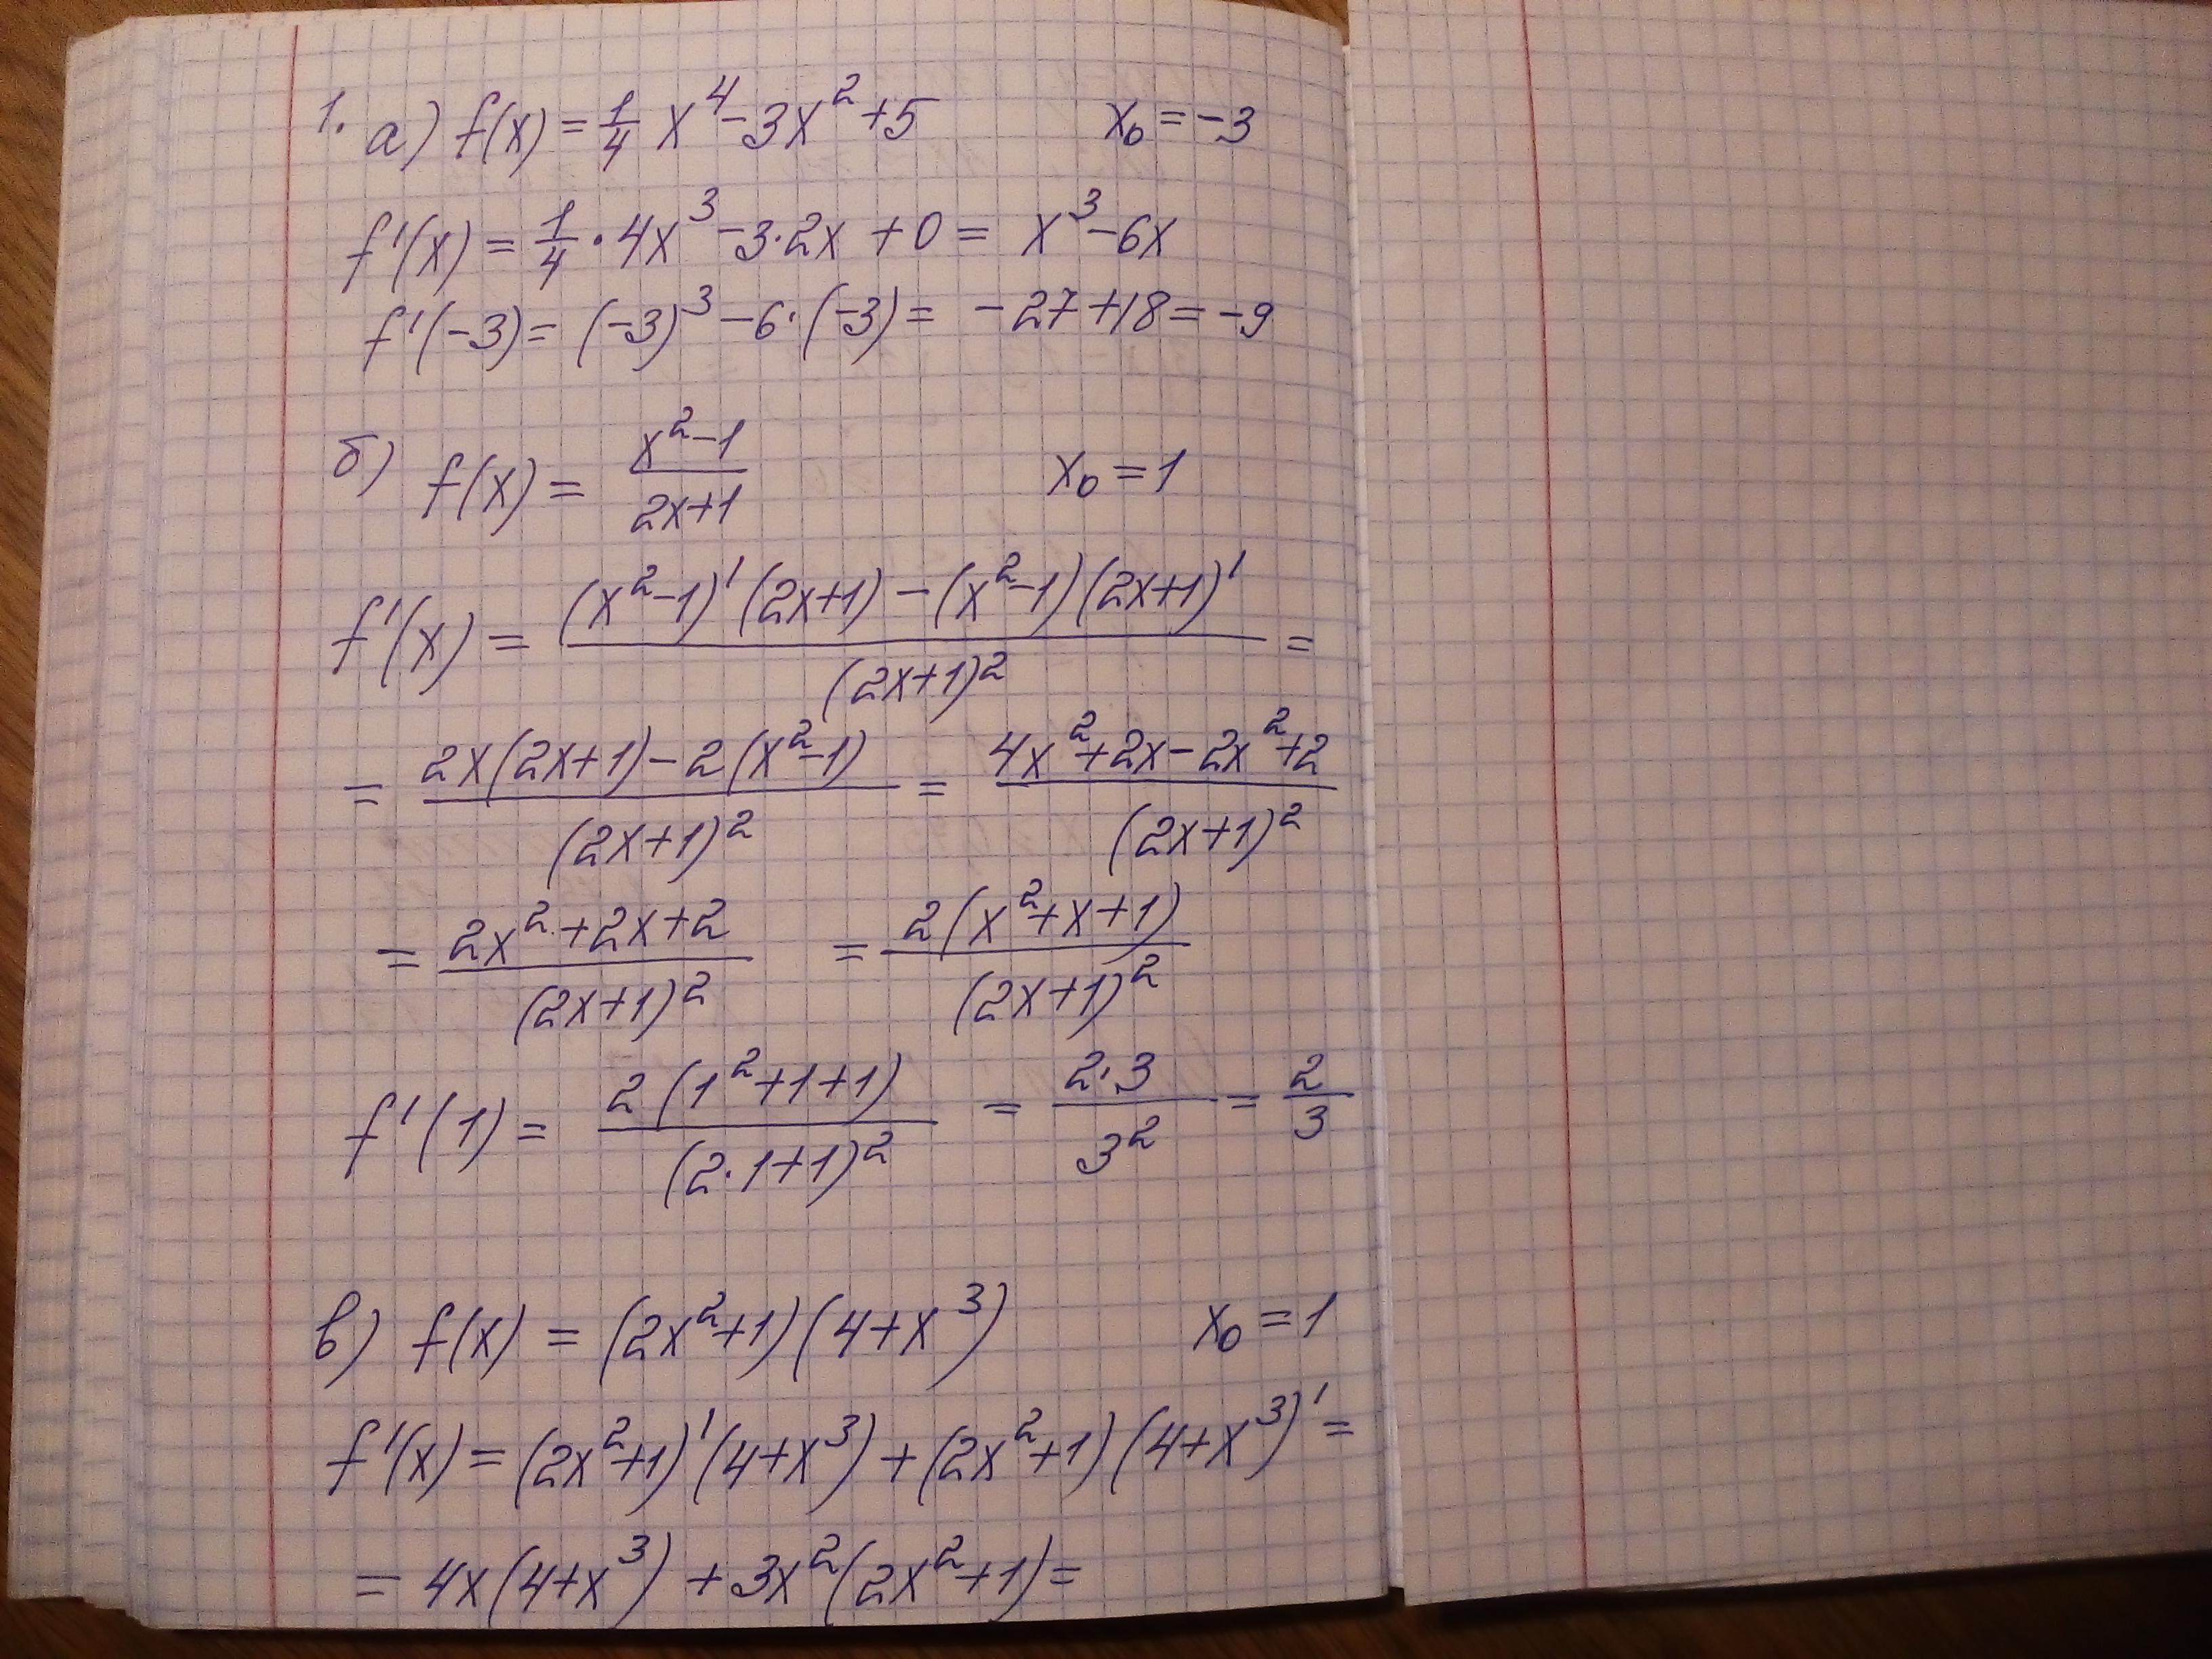 1. а) f(x) = 1/4 x^4 - 3x^2 + 5 x₀ = -3
f'(x) = 1/4 · 4x^3 - 3·2x + 0 = x^3 - 6x
f'(-3) = (-3)^3 - 6·(-3) = -27 + 18 = -9
б) f(x) = (x^2-1)/(2x+1) x₀ = 1
f'(x) = ((x^2-1)'(2x+1) - (x^2-1)(2x+1)')/(2x+1)^2 =
= (2x(2x+1) - 2(x^2-1))/(2x+1)^2 = (4x^2+2x-2x^2+2)/(2x+1)^2
= (2x^2+2x+2)/(2x+1)^2 = 2(x^2+x+1)/(2x+1)^2
f'(1) = 2(1^2+1+1)/(2·1+1)^2 = 2·3/3^2 = 2/3
в) f(x) = (2x^2+1)(4+x^3) x₀ = 1
f'(x) = (2x^2+1)'(4+x^3) + (2x^2+1)(4+x^3)' =
= 4x(4+x^3) + 3x^2(2x^2+1) =